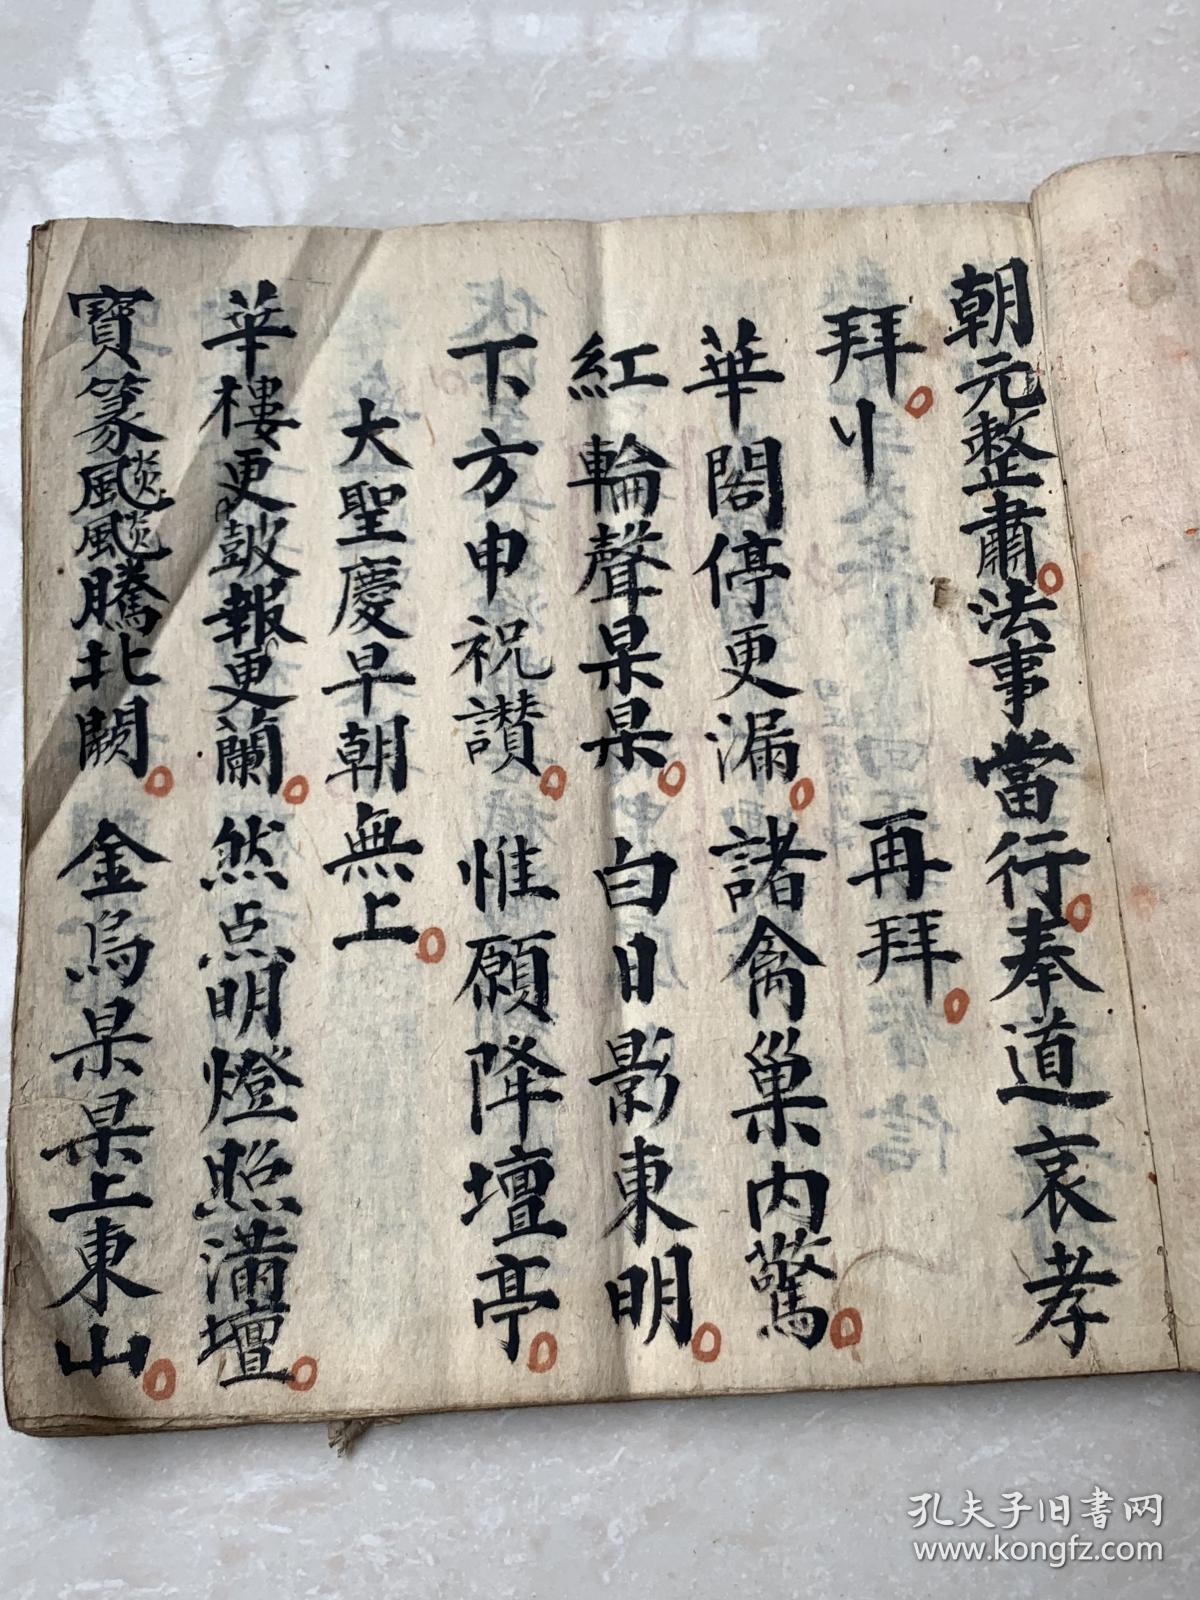 朝元整肅。法事當行。奉道哀孝
拜。〢 再拜。
華閣停更漏。諸禽巢内驚。
紅輪聲杲杲。白日影東明。
下方申祝讃。惟願降壇亭。
大聖慶早朝無上。
華樓更鼓報更蘭。然点明燈照滿壇。
寶篆飈飈騰北闕。金烏杲杲上東山。
孔夫子旧书网
www.kongfz.com